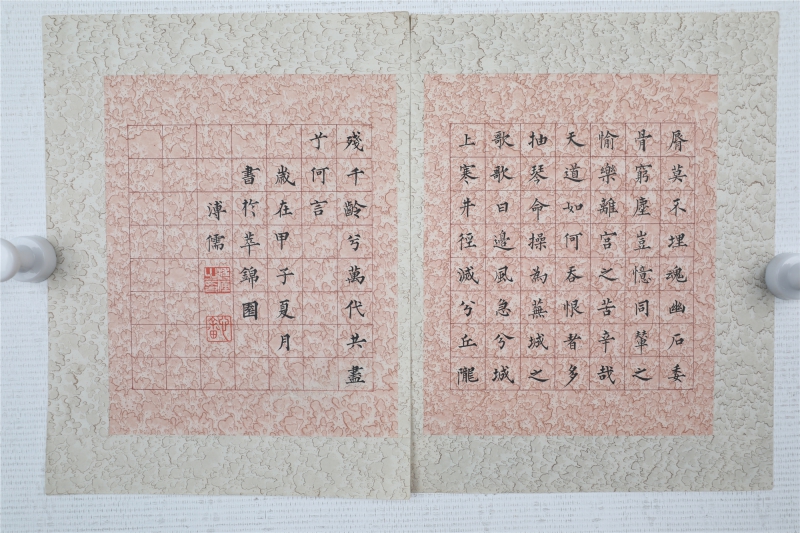 脣莫不埋魂幽石委
骨窮塵豈憶同輦之
愉樂離宮之苦辛哉
天道如何吞恨者多
抽琴命操為蕪城之
歌歌曰邊風急兮城
上寒井徑滅兮丘隴
殘千齡兮萬代共盡
兮何言
歲在甲子夏月
書於萃錦園
溥儒
心畬